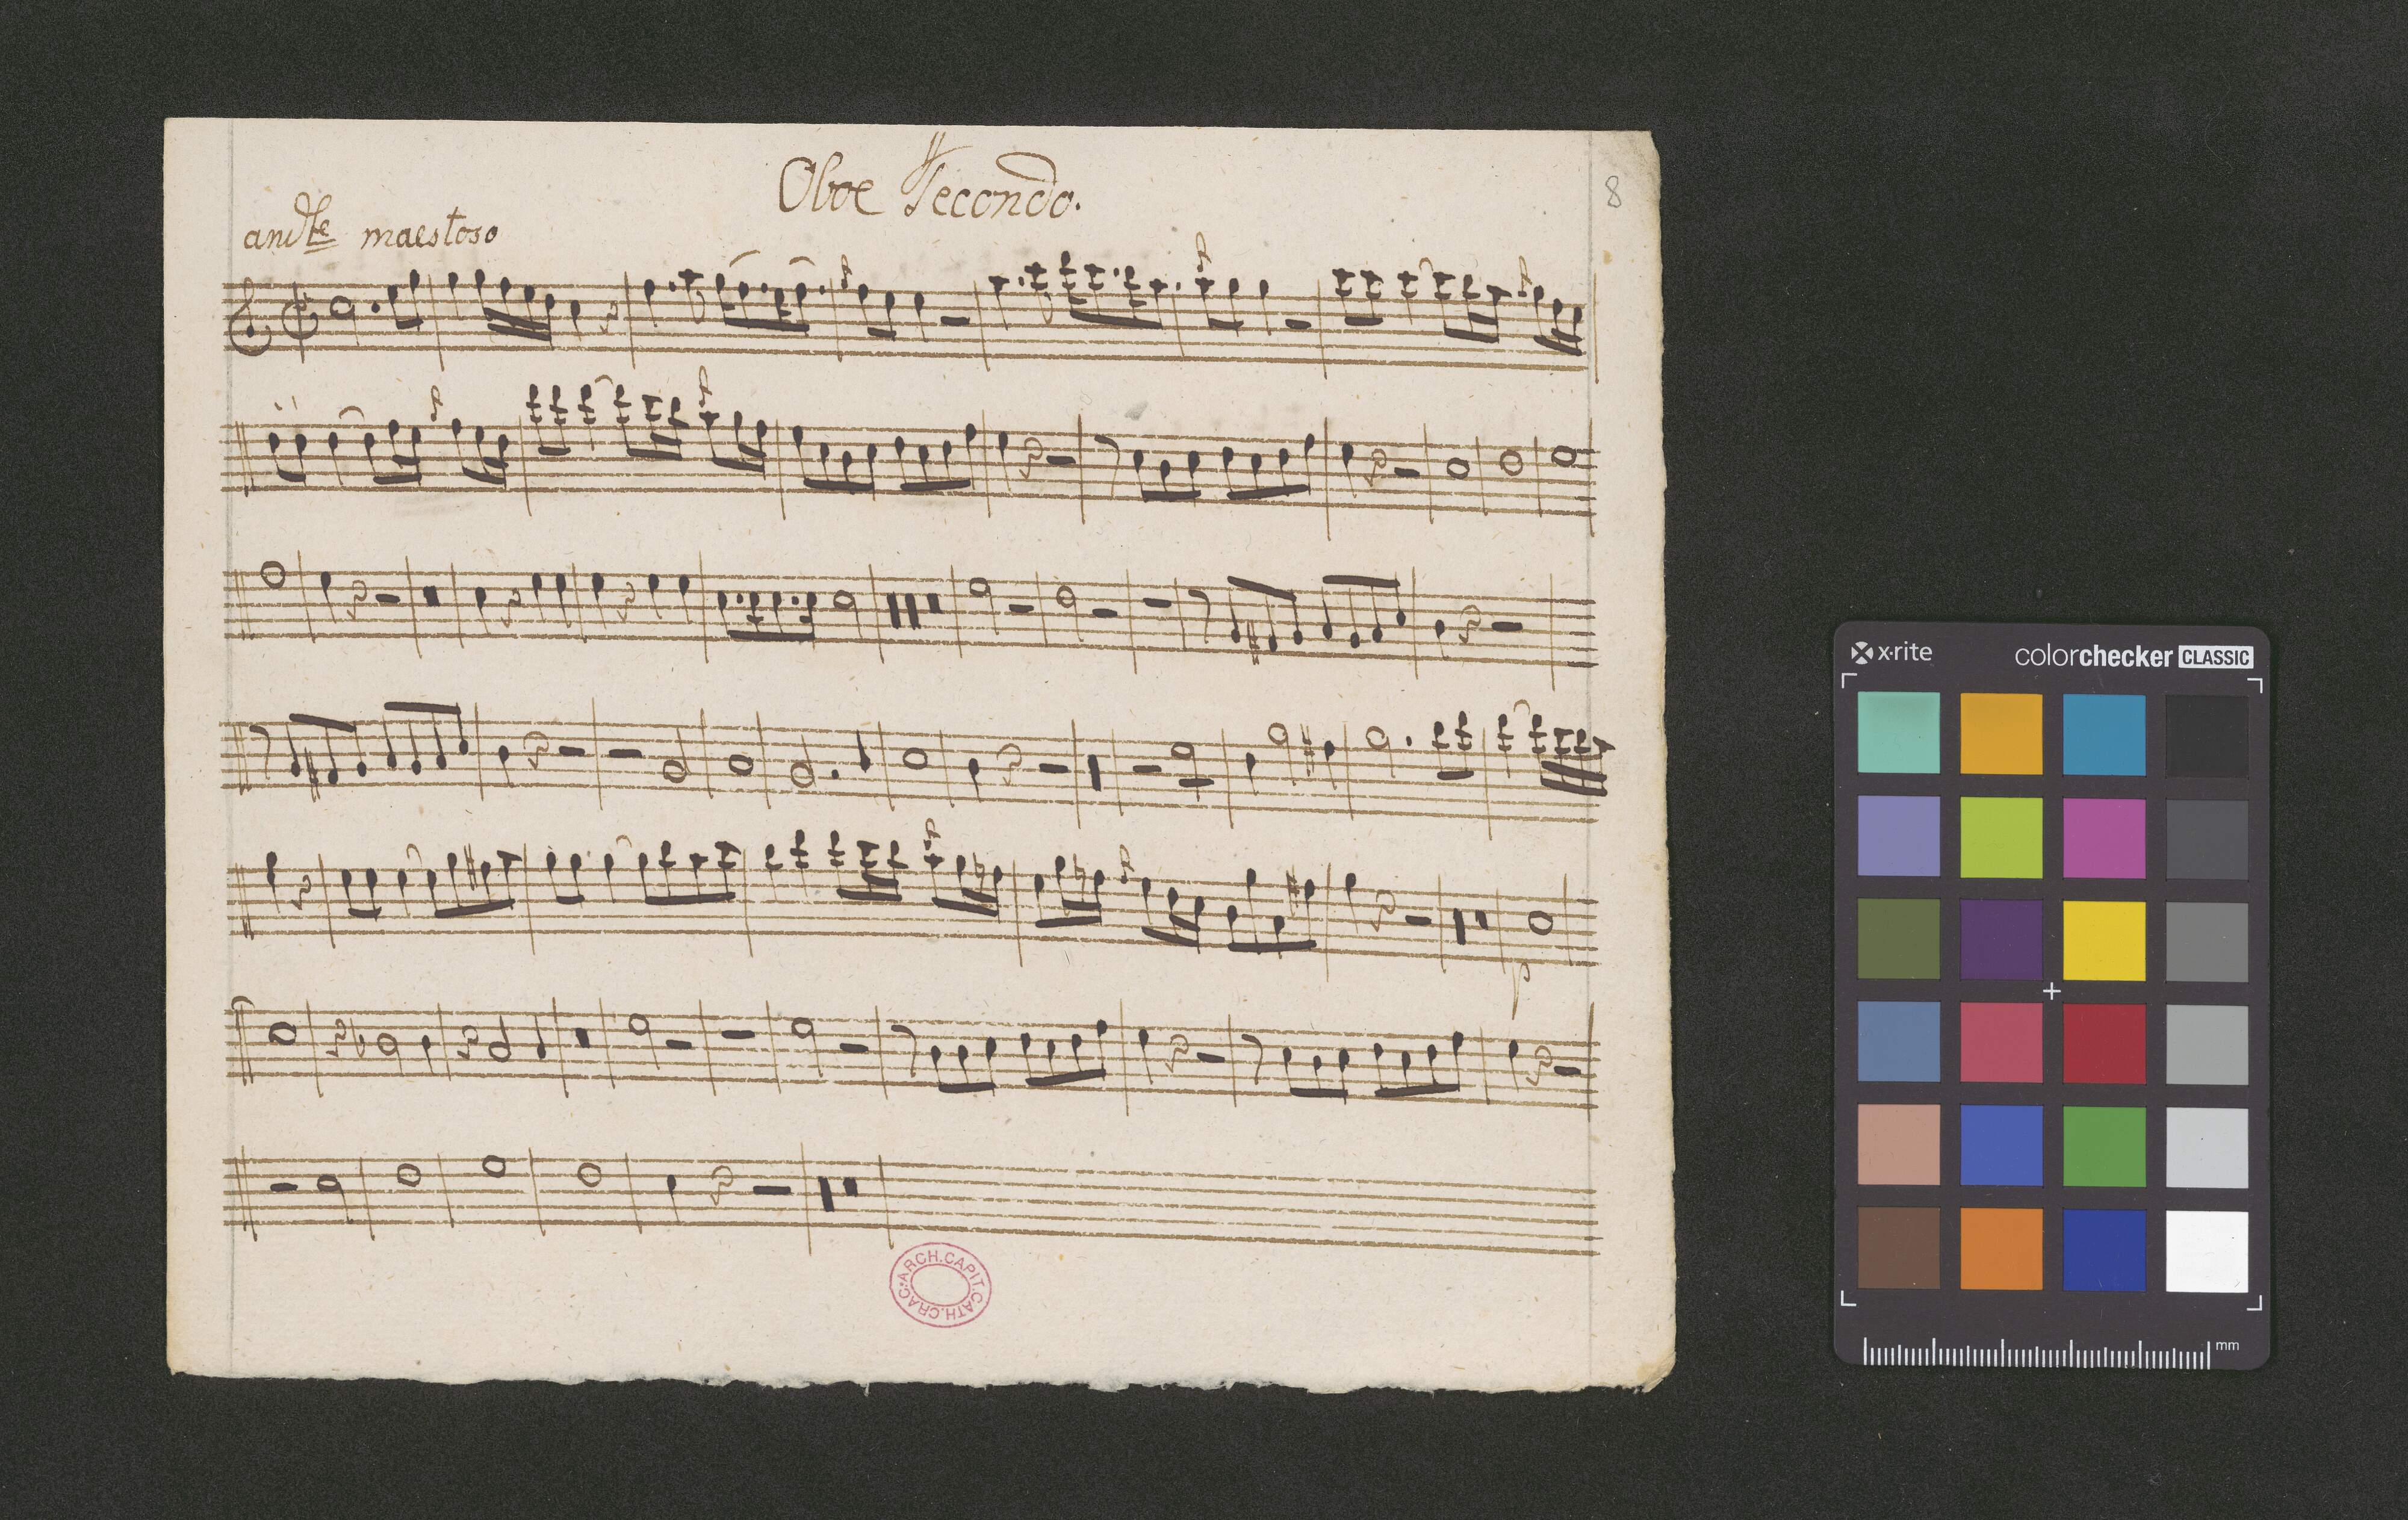 Oboe Secondo.
8
andte maestoso
p
ARCH.CAPIT.CATH.CRAC.
x-rite
colorchecker CLASSIC
mm